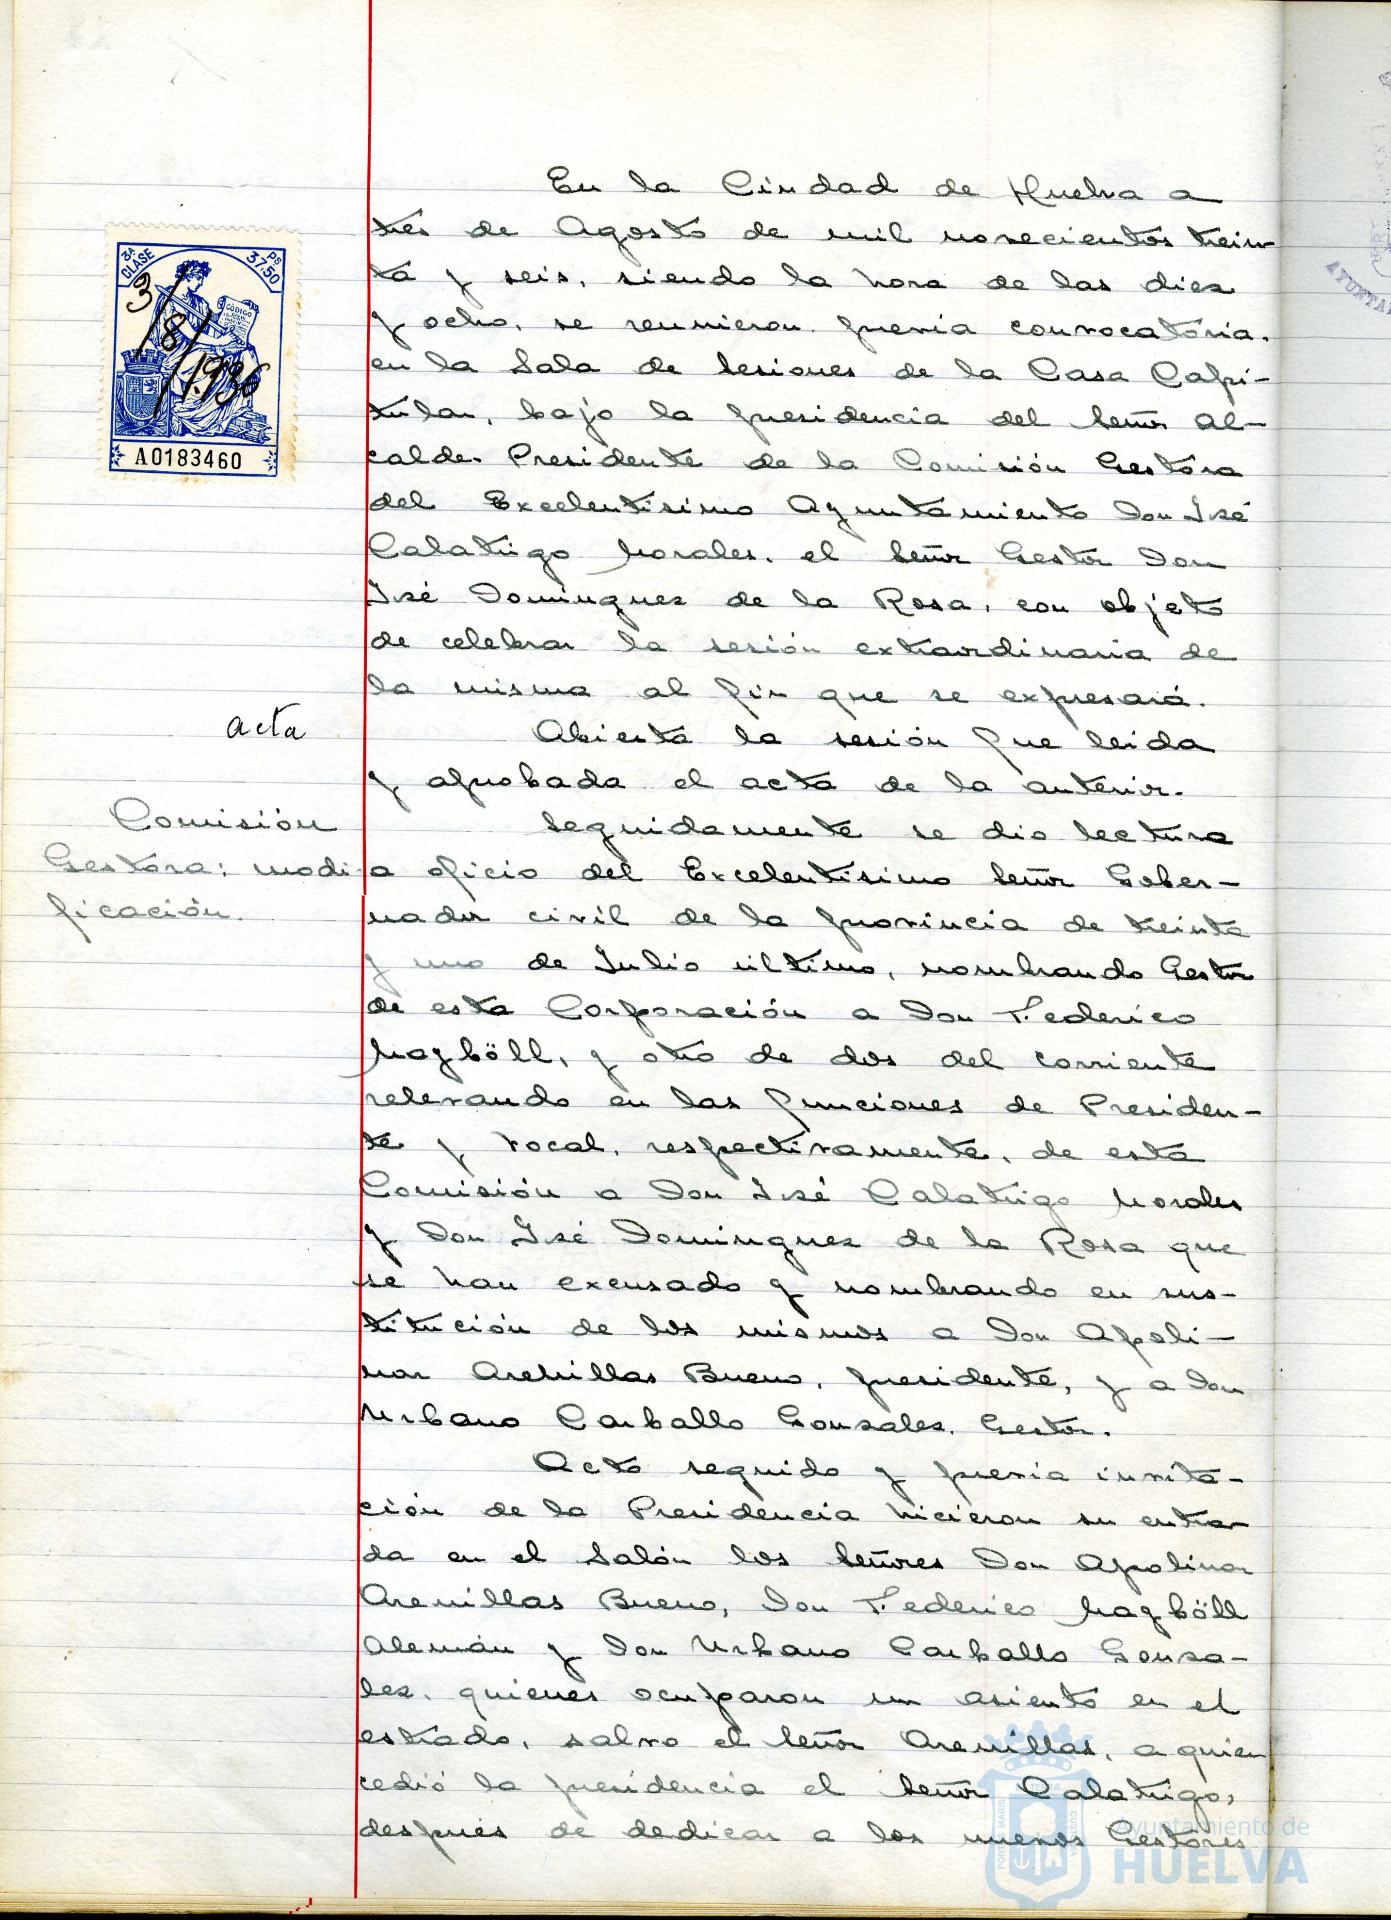 En la Ciudad de Huelva a
trés de Agosto de mil novecientos trein-
ta y seis, siendo la hora de las diez
y ocho, se reunieron previa convocatoria,
en la Sala de Sesiones de la Casa Capi-
tular, bajo la presidencia del Señor Al-
calde-Presidente de la Comisión Gestora
del Excelentisimo Ayuntamiento Don José
Calatrigo Morales, el Señor Gestor Don
José Dominguez de la Rosa, con objeto
de celebrar la sesión extraordinaria de
la misma al fin que se expresará.
3ª CLASE
ps 37,50
CÓDIGO
3/8/1.936
A0183460
acta
Abierta la sesión fue leida
y aprobada el acta de la anterior.
Comisión
Gestora: modi-
ficación.
Seguidamente se dio lectura
a oficio del Excelentisimo Señor Gober-
nador civil de la provincia de treinta
y uno de Julio último, nombrando Gestor
de esta Corporación a Don Federico
Magböll, y otro de dos del corriente
relevando en las funciones de Presiden-
te y vocal, respectivamente, de esta
Comisión a Don José Calatrigo Morales
y Don José Dominguez de la Rosa que
se han excusado y nombrando en sus-
titución de los mismos a Don Apoli-
nar Arenillas Bueno, presidente, y a Don
Urbano Carballo Gonzalez, Gestor.
Acto seguido y previa invita-
ción de la Presidencia hicieron su entra-
da en el Salón los Señores Don Apolinar
Arenillas Bueno, Don Federico Magböll
Alemán y Don Urbano Carballo Gonza-
lez, quienes ocuparon un asiento en el
estrado, salvo el Señor Arenillas, a quien
cedió la presidencia el Señor Calatrigo,
después de dedicar a los nuevos Gestores
Ayuntamiento de
HUELVA